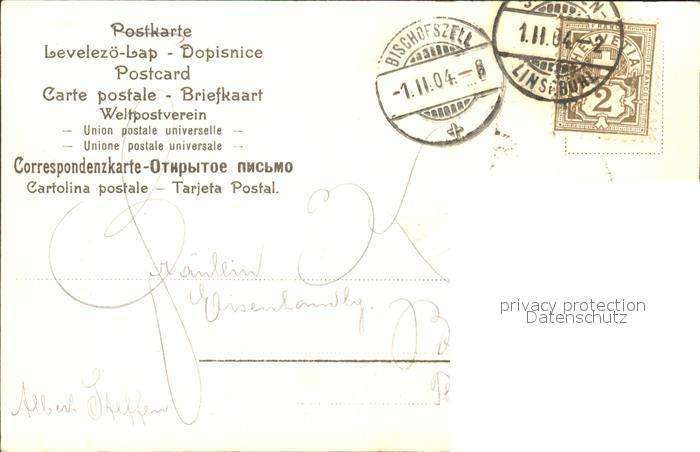 Postkarte
Levelező-Lap - Dopisnice
Postcard
Carte postale - Briefkaart
Weltpostverein
— Union postale universelle —
— Unione postale universale —
Correspondenzkarte-Открытое письмо
Cartolina postale — Tarjeta Postal.
BISCHOFSZELL
-1.II.04.-8
1.II.04-2
HELVETIA
2
Fräulein
privacy protection
Datenschutz
Albert Steffen